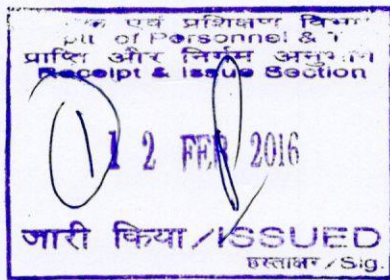 एवं प्रशिक्षण
of Personnel &
प्राप्ति और निर्गम
Receipt & Issue Section
12 FEB 2016
जारी किया/ISSUED
हस्ताक्षर/Sig